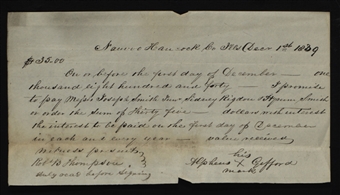 Nauvoo Hancock Co Ills Decr 1st 1839
$35.00
On or before the first day of December — one
thousand eight hundred and forty — I promise
to pay Messrs Joseph Smith Junr Sidney Rigdon & Hyrum Smith
or order the Sum of Thirty five — dollars with interest
the interest to be paid on the first day of December
in each and every year — value received
Witness present
R. B. Thompson
his
Alpheus X Gifford
mark
duly read before Signing